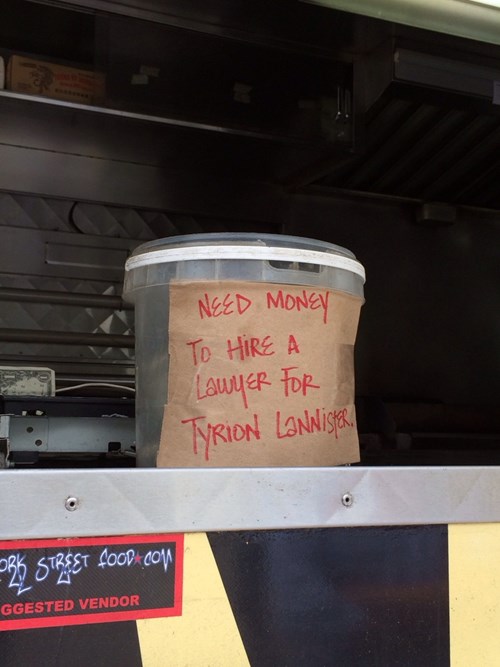 NEED MONEY
TO HIRE A
LAWYER FOR
TYRION LANNISTER.
ORK STREET FOOD★COM
GGESTED VENDOR